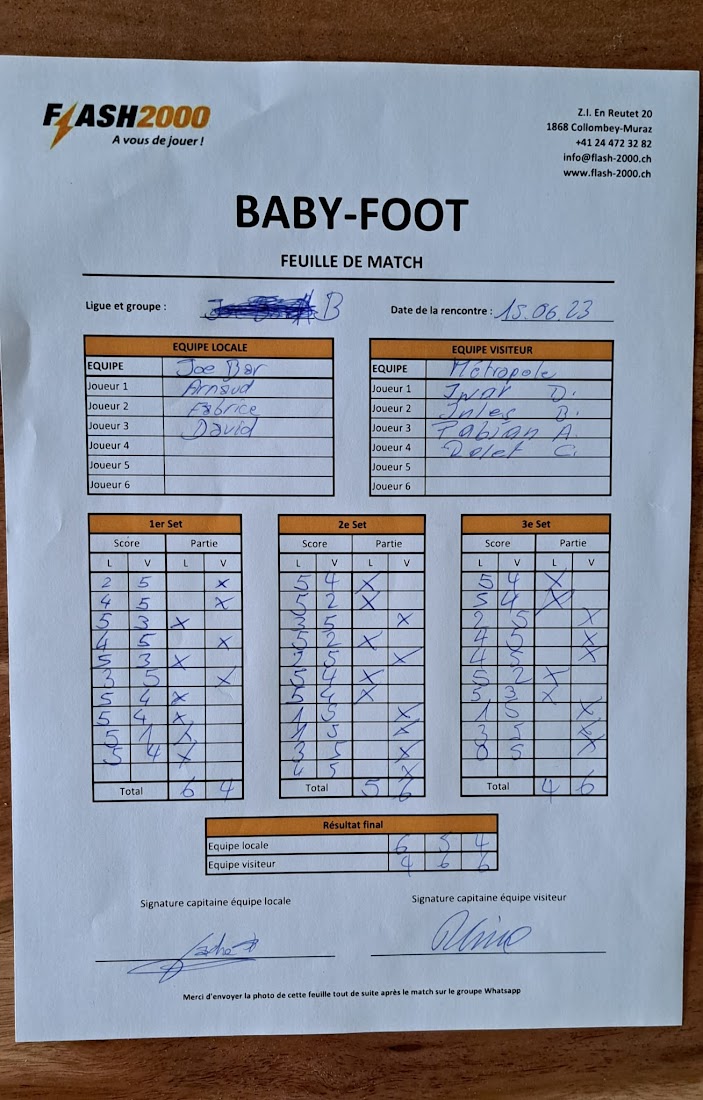 FLASH2000
A vous de jouer !
Z.I. En Reutet 20
1868 Collombey-Muraz
+41 24 472 32 82
info@flash-2000.ch
www.flash-2000.ch
BABY-FOOT
FEUILLE DE MATCH
Ligue et groupe : B
Date de la rencontre : 15.06.23
EQUIPE LOCALE
EQUIPE Joe Bar
Joueur 1 Arnaud
Joueur 2 Fabrice
Joueur 3 David
Joueur 4
Joueur 5
Joueur 6
EQUIPE VISITEUR
EQUIPE Métropole
Joueur 1 D.
Joueur 2 B.
Joueur 3 Fabian A.
Joueur 4 C.
Joueur 5
Joueur 6
1er Set
Score Partie
L V L V
2 5 x
4 5 x
5 3 x
4 5 x
5 3 x
3 5 x
5 4 x
5 4 x
5 1 x
5 4 x
Total 6 4
2e Set
Score Partie
L V L V
5 4 x
5 2 x
3 5 x
5 2 x
2 5 x
5 4 x
5 4 x
1 5 x
1 5 x
3 5 x
4 5 x
Total 5 6
3e Set
Score Partie
L V L V
5 4 x
5 4 x
2 5 x
4 5 x
4 5 x
5 2 x
5 3 x
1 5 x
3 5 x
0 5 x
Total 4 6
Résultat final
Equipe locale 6 5 4
Equipe visiteur 4 6 6
Signature capitaine équipe locale
Signature capitaine équipe visiteur
Merci d'envoyer la photo de cette feuille tout de suite après le match sur le groupe Whatsapp